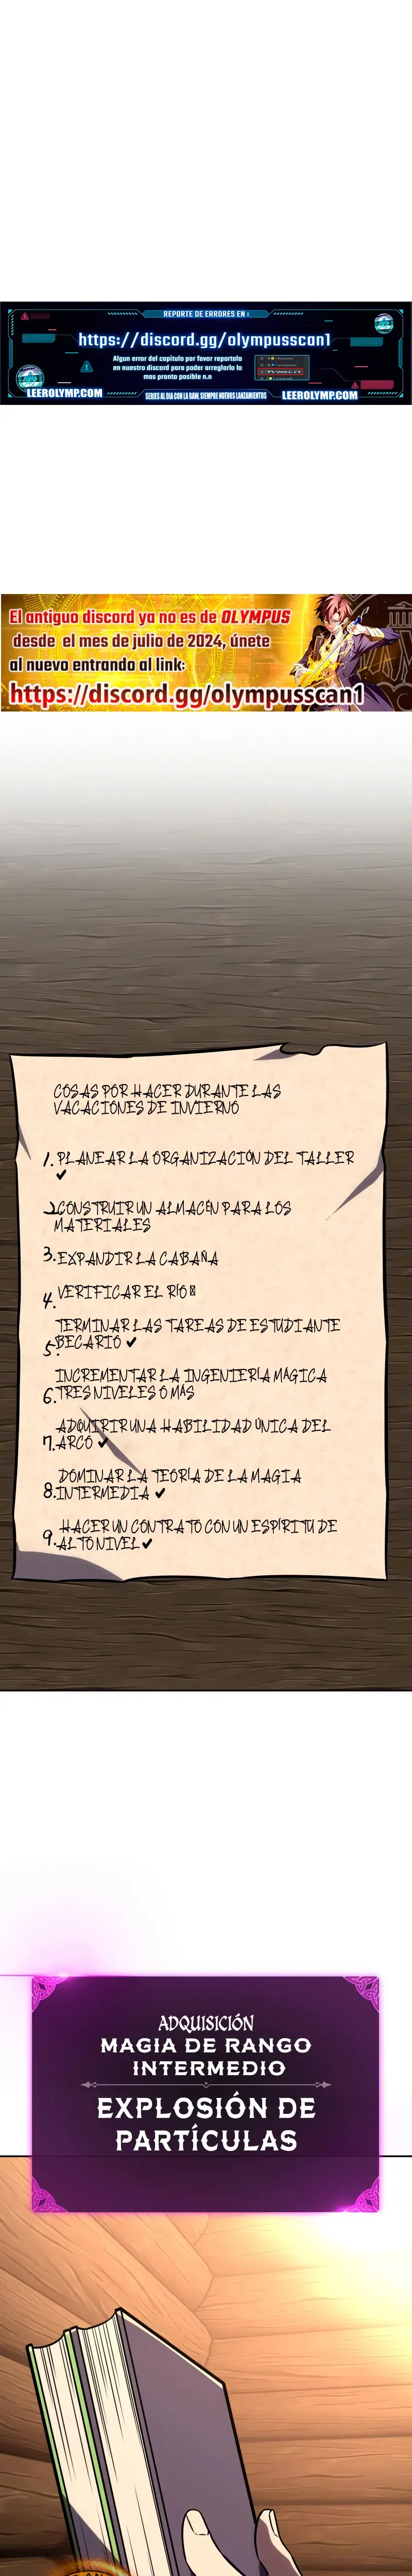 REPORTE DE ERRORES EN :
https://discord.gg/olympusscan1
Algun error del capitulo por favor reportalo
en nuestro discord para poder arreglarlo lo
mas pronto posible n.n
LEEROLYMP.COM
SERIES AL DIA CON LA RAW, SIEMPRE NUEVOS LANZAMIENTOS
LEEROLYMP.COM
El antiguo discord ya no es de OLYMPUS
desde el mes de julio de 2024, únete
al nuevo entrando al link:
https://discord.gg/olympusscan1
COSAS POR HACER DURANTE LAS
VACACIONES DE INVIERNO
1. PLANEAR LA ORGANIZACIÓN DEL TALLER
✔
2. CONSTRUIR UN ALMACÉN PARA LOS
MATERIALES
3. EXPANDIR LA CABAÑA
4. VERIFICAR EL RÍO
5. TERMINAR LAS TAREAS DE ESTUDIANTE
BECARIO ✔
6. INCREMENTAR LA INGENIERÍA MÁGICA
TRES NIVELES O MÁS
7. ADQUIRIR UNA HABILIDAD ÚNICA DEL
ARCO ✔
8. DOMINAR LA TEORÍA DE LA MAGIA
INTERMEDIA ✔
9. HACER UN CONTRATO CON UN ESPÍRITU DE
ALTO NIVEL ✔
ADQUISICIÓN
MAGIA DE RANGO
INTERMEDIO
EXPLOSIÓN DE
PARTÍCULAS